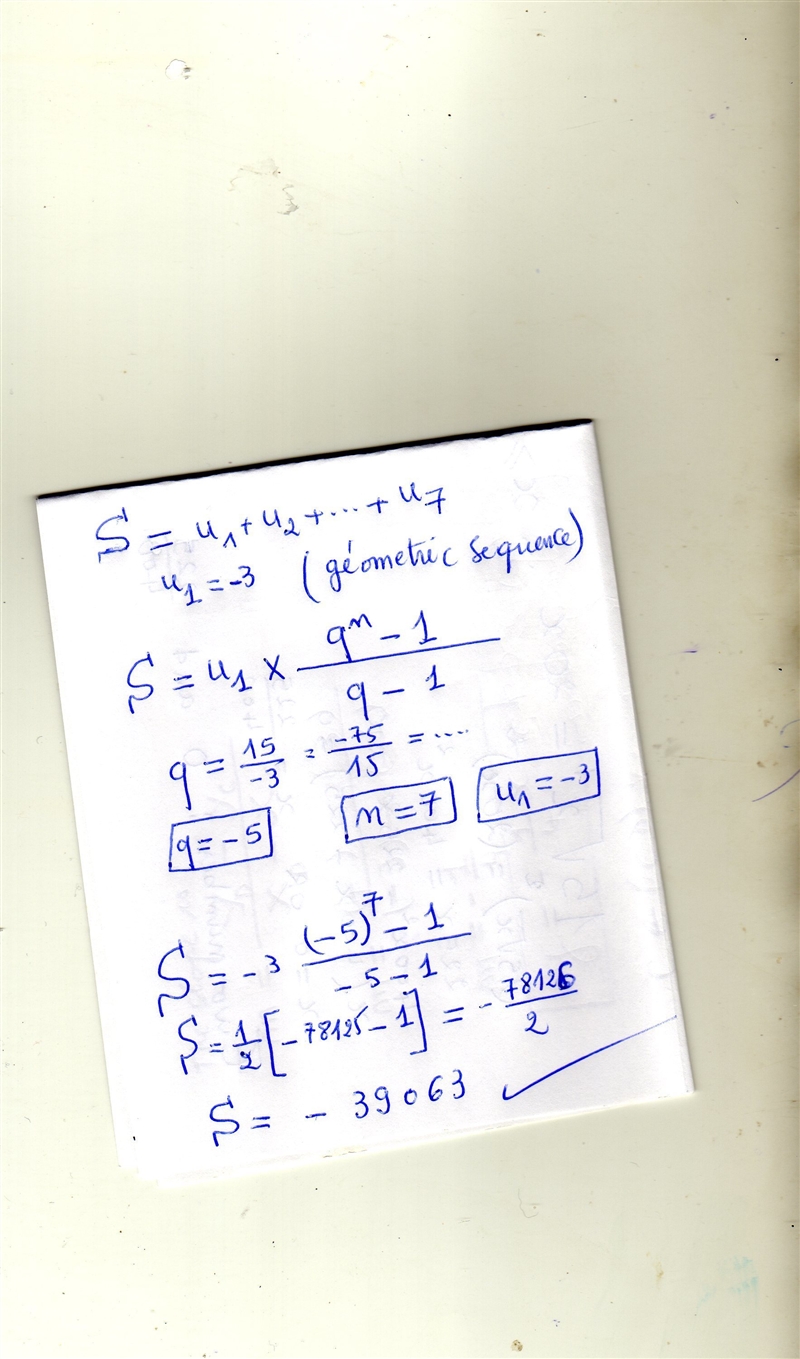 S = u₁ + u₂ + ... + u₇
u₁ = -3 (géometric sequence)
S = u₁ × (qⁿ - 1) / (q - 1)
q = 15/-3 = -75/15 = ....
q = -5 n = 7 u₁ = -3
S = -3 ((-5)⁷ - 1) / (-5 - 1)
S = 1/2 [-78125 - 1] = - 78126/2
S = - 39063 ✓